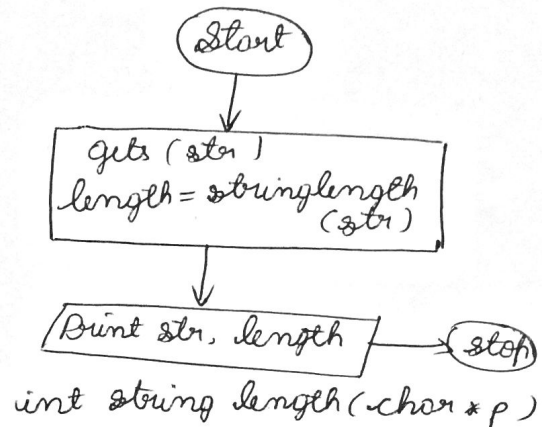 Start
gets (str)
length = stringlength
(str)
Print str, length
stop
int string length (char * p)